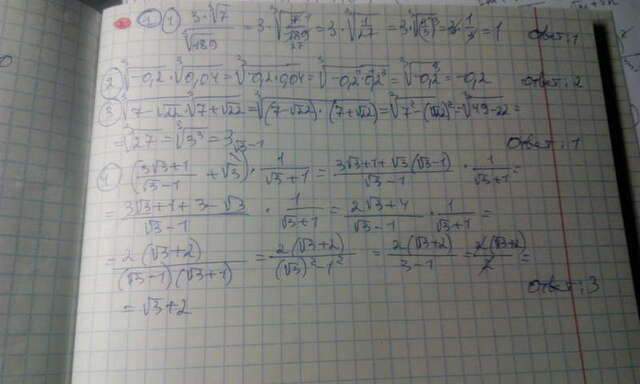 ① 1) 3·∛7 / ∛189 = 3·∛(7/189) = 3·∛(1/27) = 3·∛(1/3)³ = 3·1/3 = 1 Ответ: 1
② ∛-0,2 · ∛0,04 = ∛-0,2·0,04 = ∛-0,2·0,2² = ∛-0,2³ = -0,2 ответ: 2
③ ∛7-√22 · ∛7+√22 = ∛(7-√22)·(7+√22) = ∛7²-(√22)² = ∛49-22 =
= ∛27 = ∛3³ = 3 Ответ: 1
① ((3√3+1)/(√3-1) + √3) · 1/(√3+1) = (3√3+1+√3(√3-1))/(√3-1) · 1/(√3+1) =
= (3√3+1+3-√3)/(√3-1) · 1/(√3+1) = (2√3+4)/(√3-1) · 1/(√3+1) =
= 2(√3+2)/((√3-1)(√3+1)) = 2(√3+2)/((√3)²-1²) = 2(√3+2)/(3-1) = 2(√3+2)/2 =
= √3+2 Ответ: 3